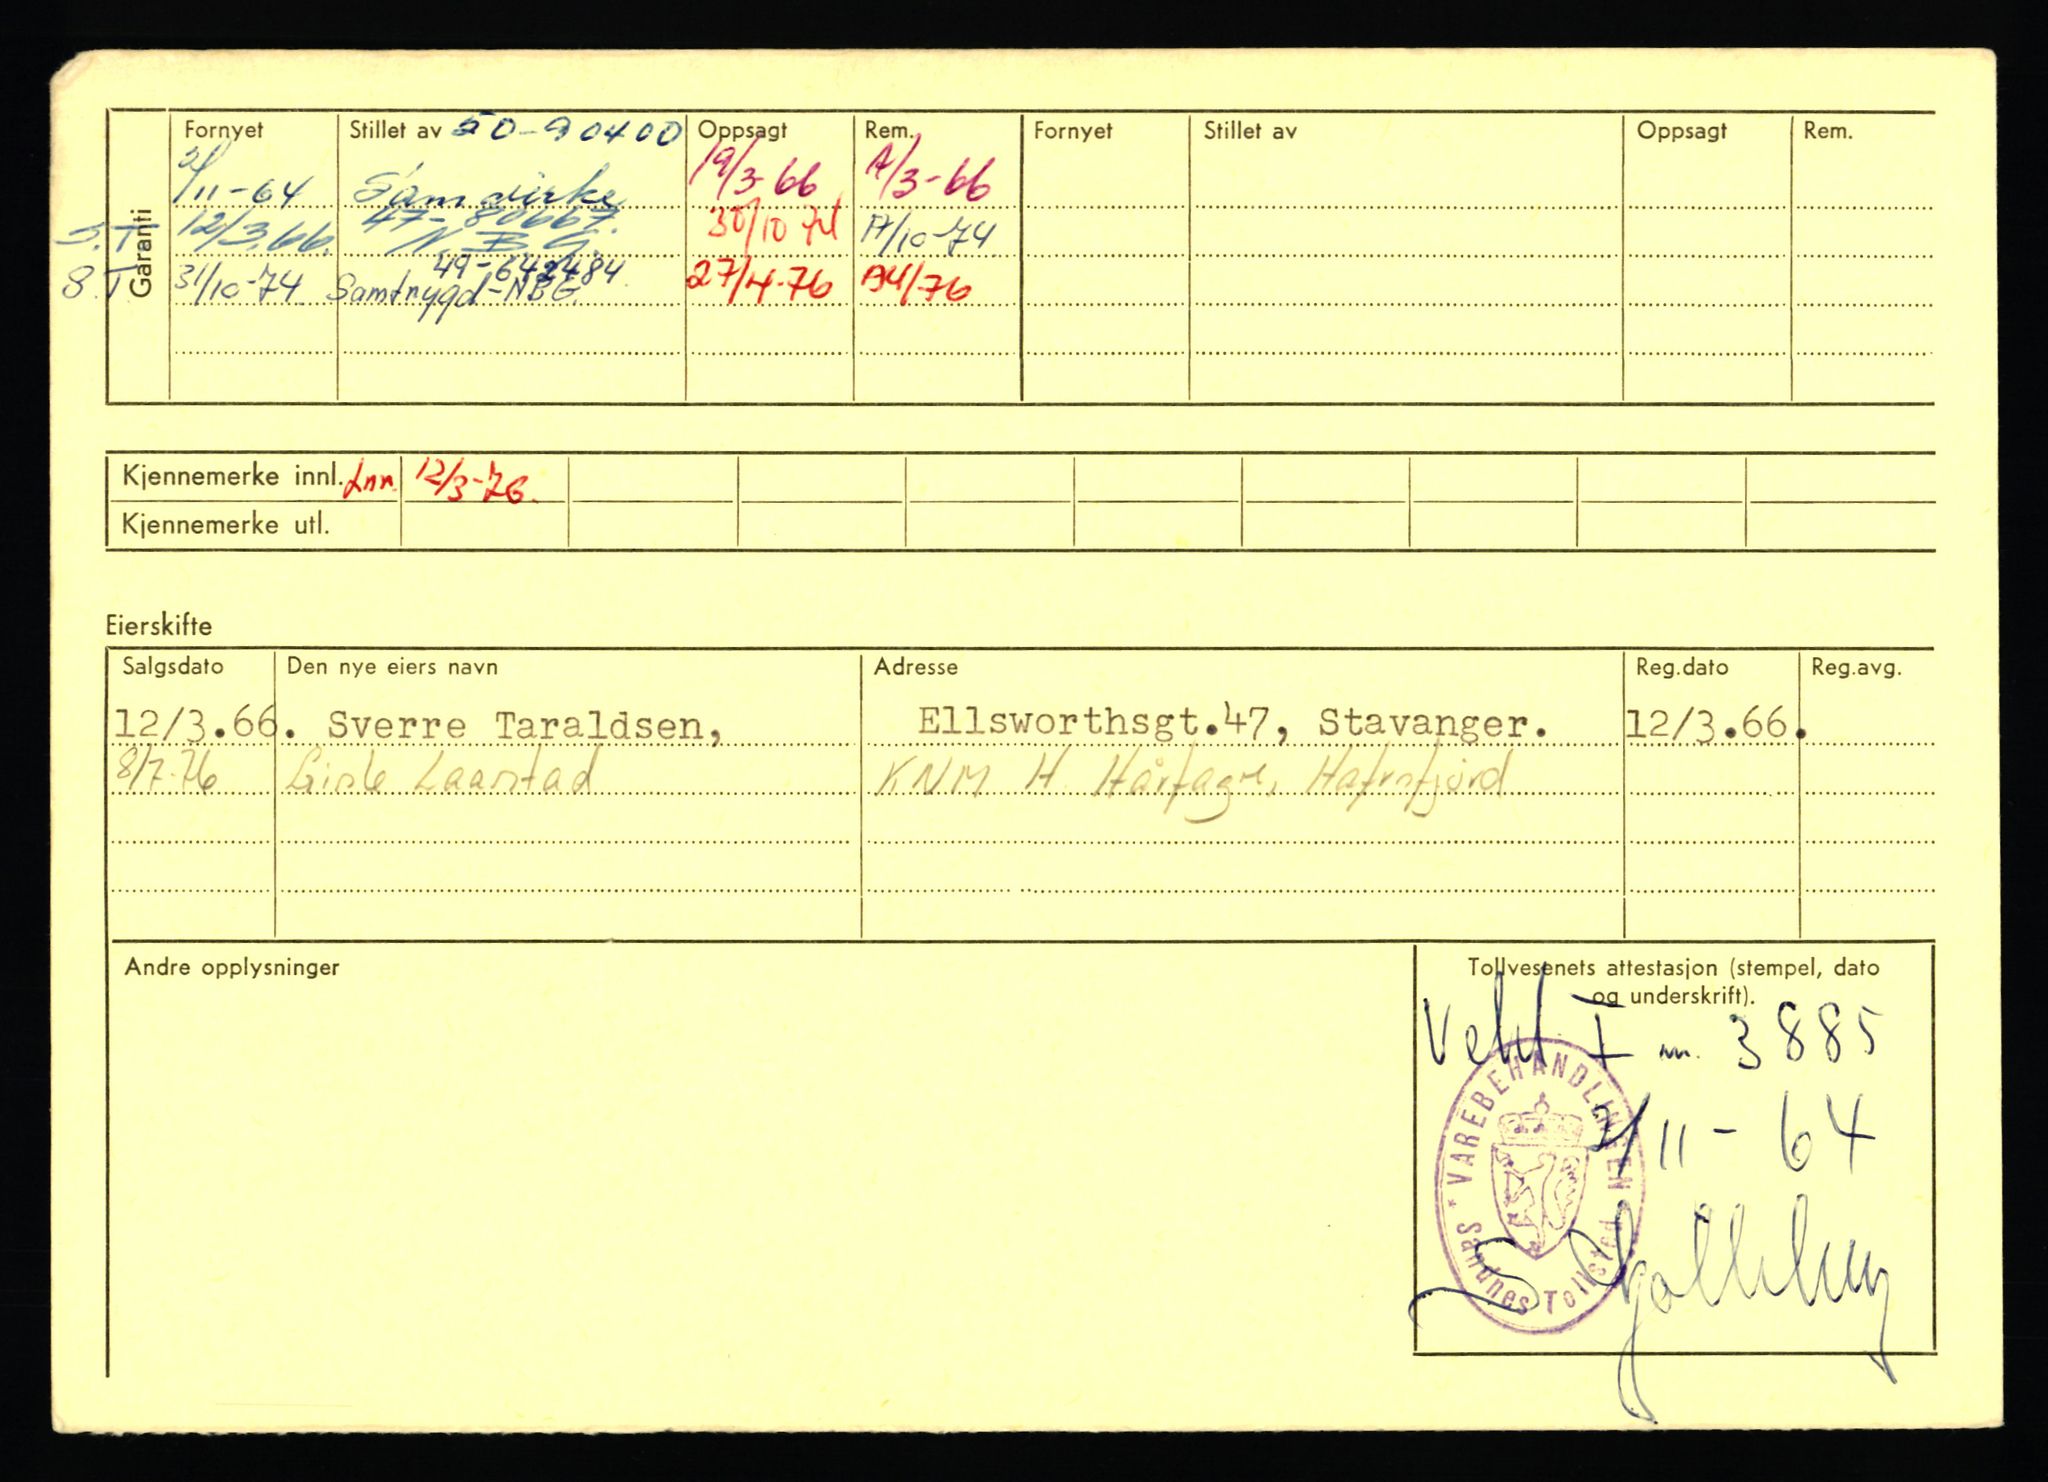 Garanti
Fornyet Stillet av 50-90400 Oppsagt Rem. Fornyet Stillet av Oppsagt Rem.
2/11-64 Samvirke 19/3-66 A/3-66
S.T. 12/3.66. 47-80667. N.B.G. 30/10 74 A/10-74
S.T. 31/10-74 49-642484 Samtrygd-NBG. 27/4-76 A4/76
Kjennemerke innl. Inn. 12/3-76.
Kjennemerke utl.
Eierskifte
Salgsdato Den nye eiers navn Adresse Reg.dato Reg.avg.
12/3.66. Sverre Taraldsen, Ellsworthsgt.47, Stavanger. 12/3.66.
8/7-76 Gisle Laastad KNM H. Hårfagre, Hafrsfjord
Andre opplysninger
Tollvesenets attestasjon (stempel, dato
og underskrift).
I nr. 3885
2/11-64
* VAREBEHANDLINGEN *
Sandnes Tollsted